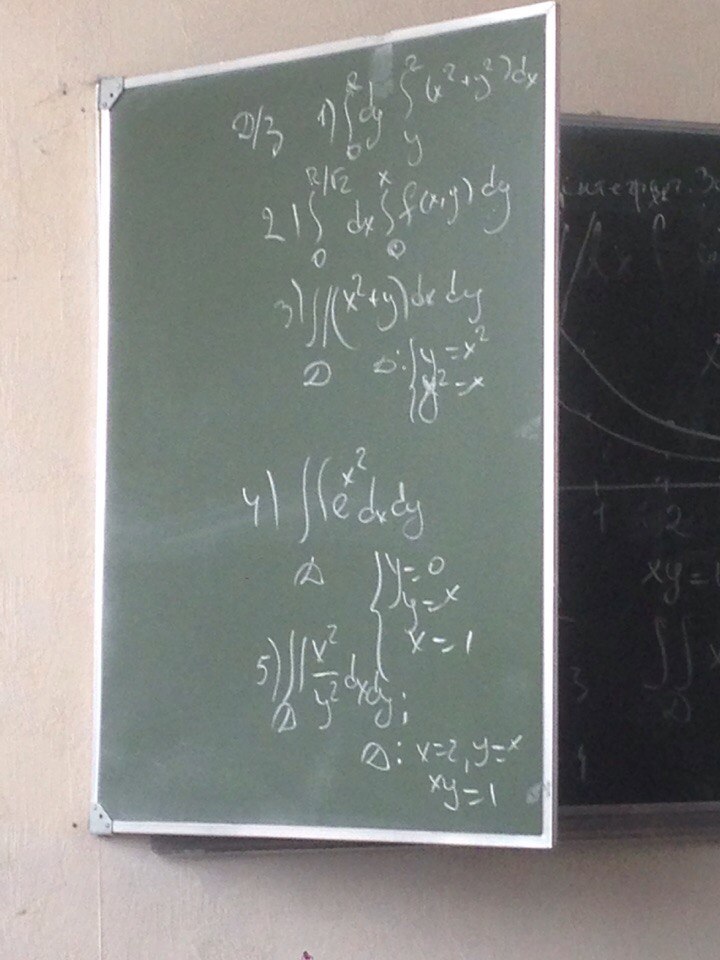 Д/з 1) ∫₀² dy ∫ᵧ² (x² + y²) dx
2) ∫₀^(R/√2) dx ∫₀ˣ f(x,y) dy
3) ∬ (x² + y) dx dy
D D: { y = x²
y² = x
4) ∬ e^(x²) dx dy
D { y = 0
y = x
x = 1
5) ∬ x²/y² dx dy;
D
D: x=2, y=x
xy=1
1 2
xy=1
∬
D
3
4